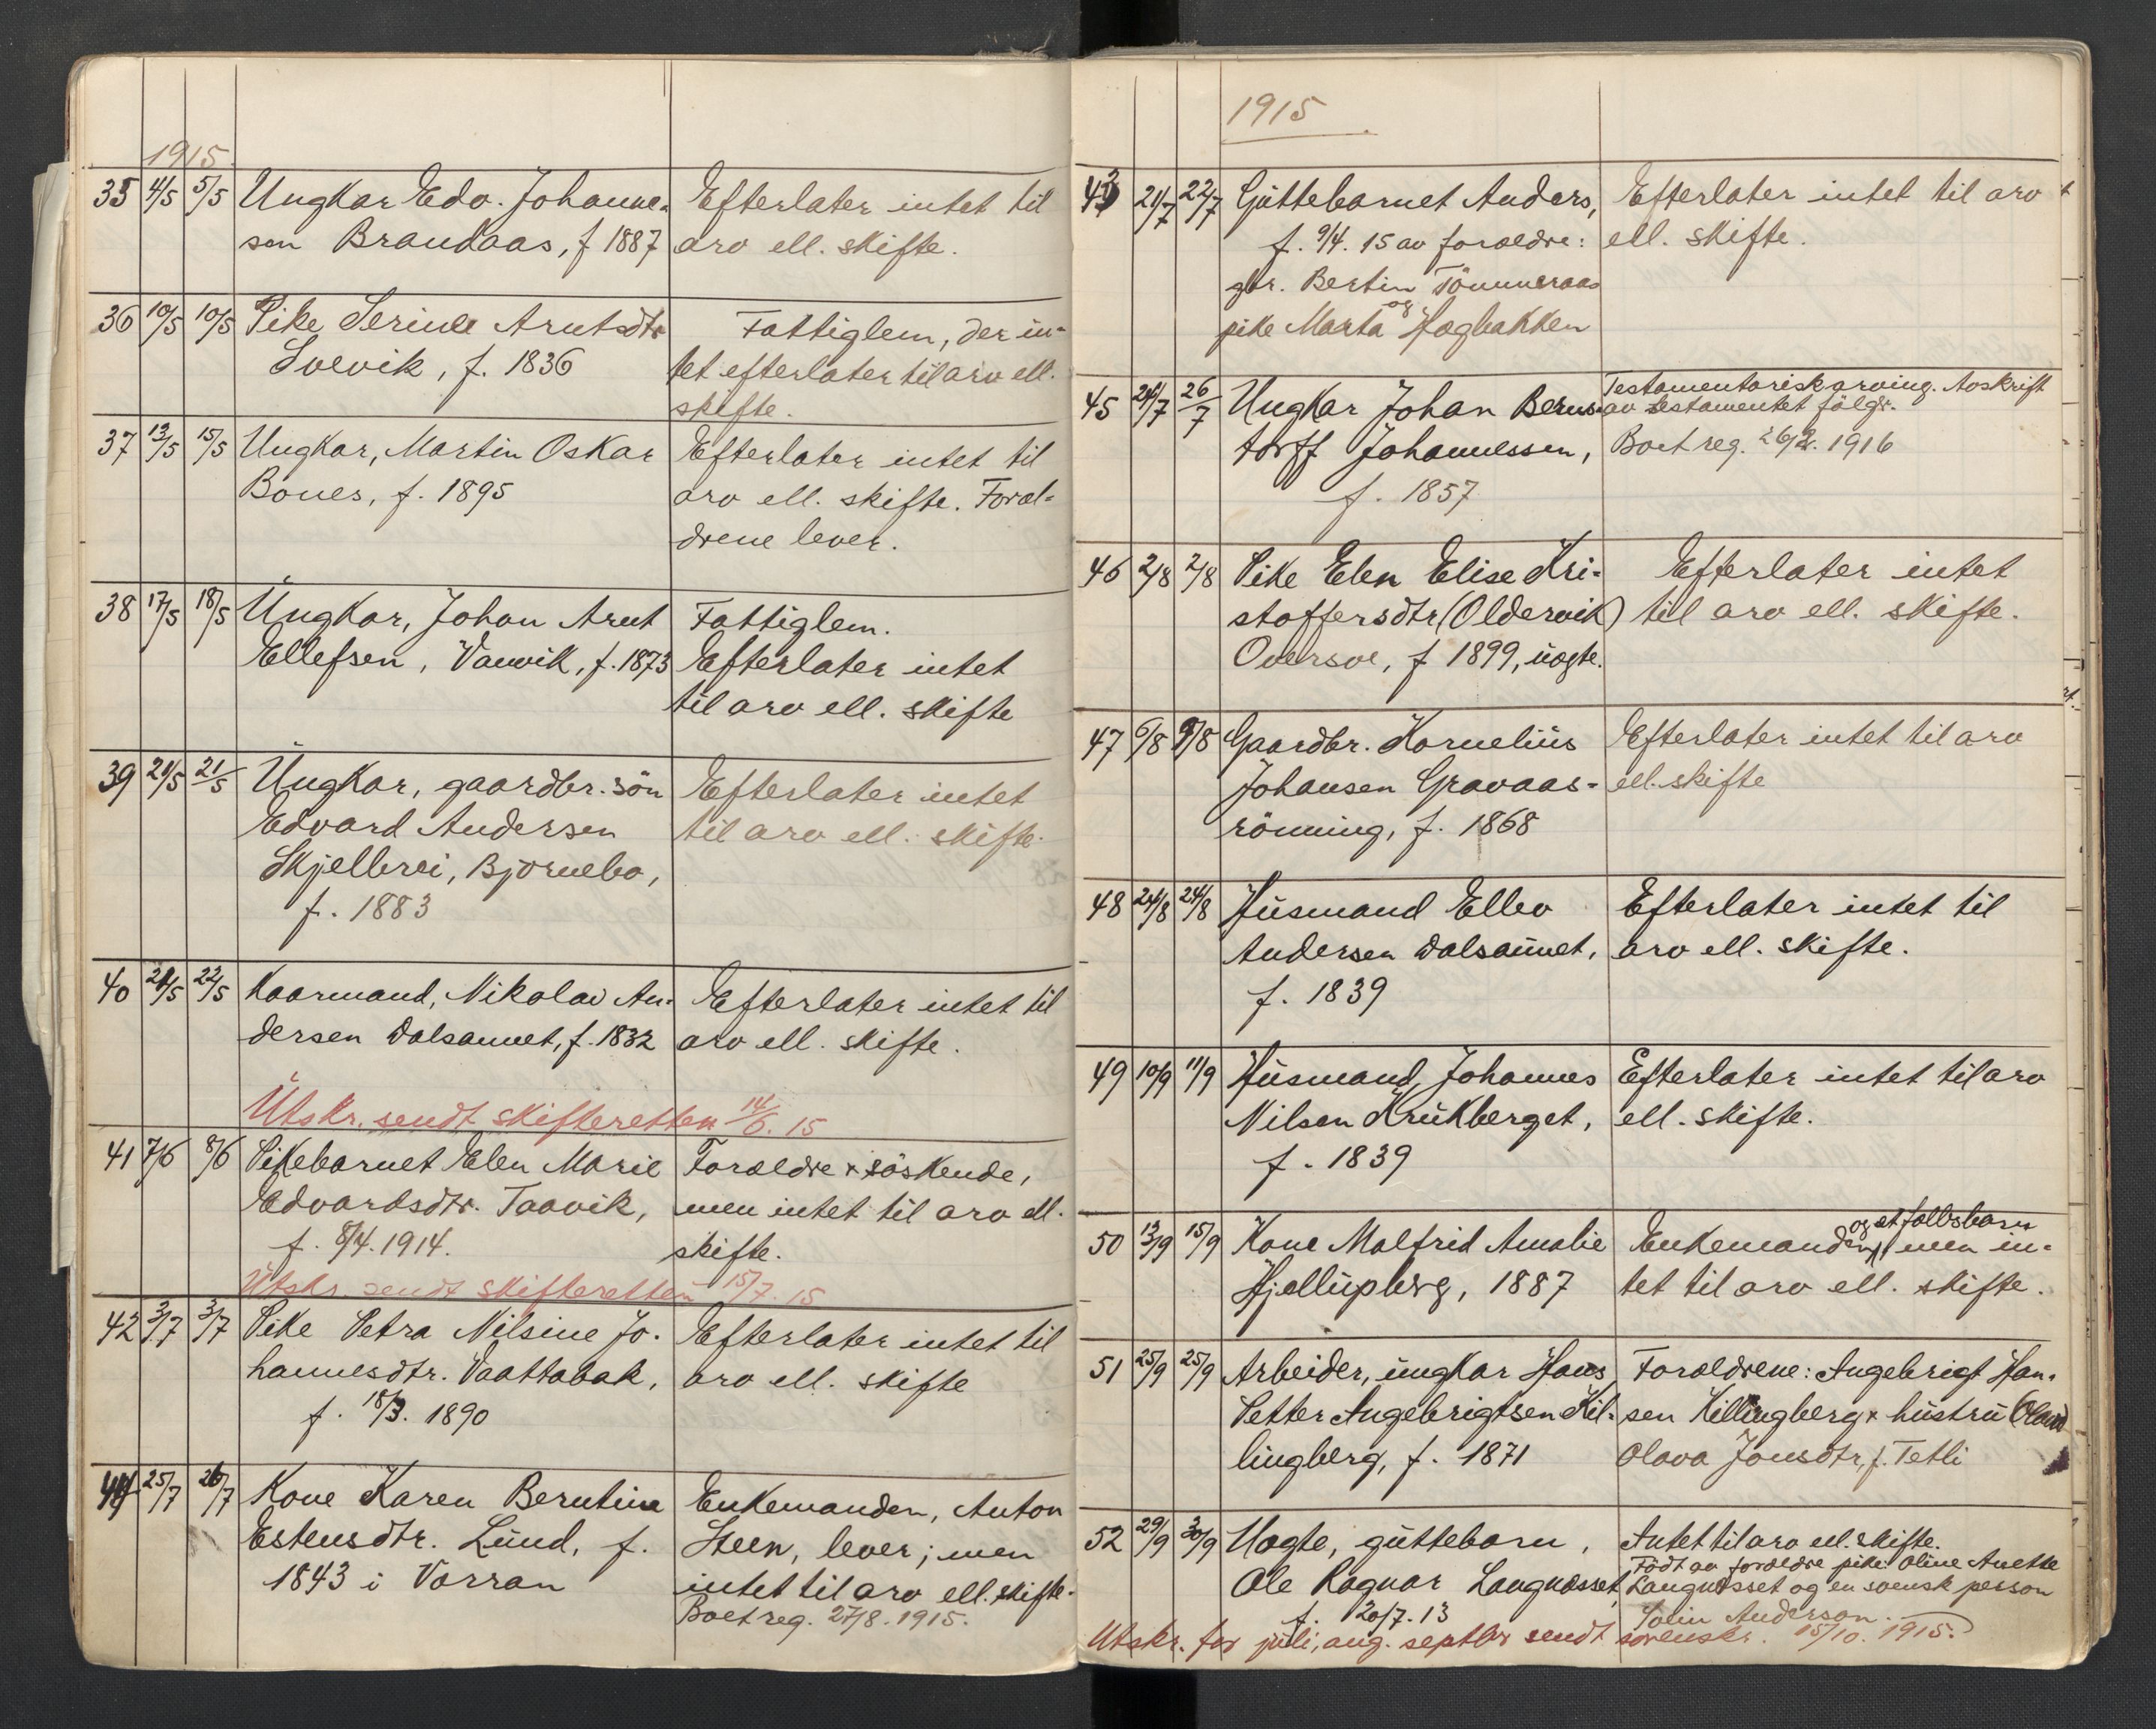 1915.
35 4/5 5/5 Ungkar Edv. Johanne- Efterlater intet til
sen Brandaas, f 1887 arv ell. skifte.
36 10/5 10/5 Pike Serine Arntsdtr Fattiglem, der in-
Svevik, f. 1836 tet efterlater til arv ell.
skifte.
37 13/5 15/5 Ungkar, Martin Oskar Efterlater intet til
Bones, f. 1895 arv ell. skifte. Foræl-
drene lever.
38 17/5 18/5 Ungkar, Johan Arnt Fattiglem.
Ellefsen, Vanvik, f. 1873 Efterlater intet
til arv ell. skifte
39 21/5 21/5 Ungkar, gaardbr. sön Efterlater intet
Edvard Andersen til arv ell. skifte.
Skjellrei, Bjørnebo,
f. 1883
40 21/5 22/5 Kaarmand, Nikolai An- Efterlater intet til
dersen Dalsaunet, f. 1832 arv ell. skifte.
Utskr. sendt skifteretten 14/6. 15
41 7/6 8/6 Pikebarnet Elen Marie Forældre & söskende,
Edvardsdtr. Taavik, men intet til arv ell.
f. 8/4. 1914. skifte.
Utskr. sendt skifteretten 15/7. 15
42 3/7 3/7 Pike Petra Nilsine Jo- Efterlater intet til
hannesdtr. Vaattabak, arv ell. skifte
f. 18/3. 1890
44 25/7 26/7 Kone Karen Berntine Enkemanden, Anton
Estensdtr. Lund, f. Steen, lever; men
1843 i Vorran intet til arv ell. skifte.
Boet reg. 27/8. 1915.
1915
43 21/7 22/7 Guttebarnet Anders, Efterlater intet til arv
f. 9/4. 15 av forældre: ell. skifte.
gbr. Bertin Tömmeraas
og
pike Marta Hagbakken
45 24/7 26/7 Ungkar Johan Berns- Testamentarisk arving. Avskrift
av testamentet fölger.
torff Johannessen, Boet reg. 26/2. 1916
f. 1857
46 2/8 2/8 Pike Elen Elise Kri- Efterlater intet
stoffersdtr (Oldervik) til arv ell. skifte.
Oversve, f 1899, uægte.
47 6/8 9/8 Gaardbr. Kornelius Efterlater intet til arv
Johansen Gravaas- ell. skifte
rönning, f. 1868
48 24/8 24/8 Husmand Ellev Efterlater intet til
Andersen Dalsaunet, arv ell. skifte.
f. 1839
49 10/9 11/9 Husmand, Johannes Efterlater intet til arv
Nilsen Krukberget, ell. skifte.
f. 1839
og et fællesbarn
50 13/9 15/9 Kone Malfrid Amalie Enkemanden, men in-
Hjellupberg, 1887 tet til arv ell. skifte.
51 25/9 25/9 Arbeider, ungkar Hans Forældrene: Ingebrigt Han-
Petter Ingebrigtsen Kil- sen Killingberg & hustru
lingberg, f. 1871 Olava Jonsdtr, f. Tetli
52 29/9 30/9 Uægte, guttebarn, Intet til arv ell. skifte.
Ole Ragnar Langnæsset, Födt av forældre pike Oline Anette
Langnæsset og en svensk person
f. 20/7. 13 Anderson.
Utskr. for juli, aug. septbr sendt sorenskr. 15/10. 1915.